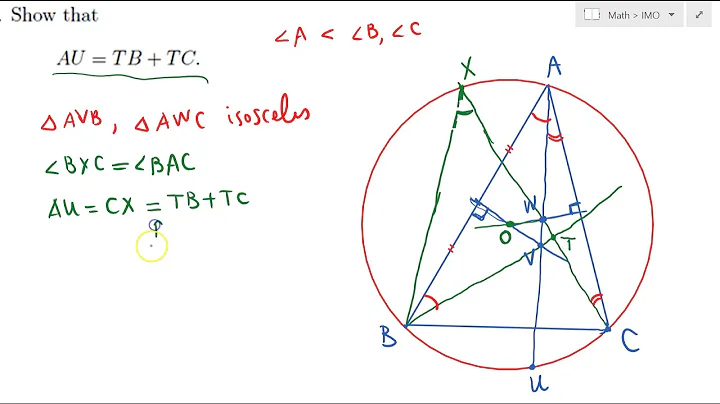 . Show that
AU = TB + TC.
∠A < ∠B, ∠C
Math > IMO
△AVB, △AWC isosceles
∠BXC = ∠BAC
AU = CX = TB + TC
X
A
W
O
T
V
B
C
U